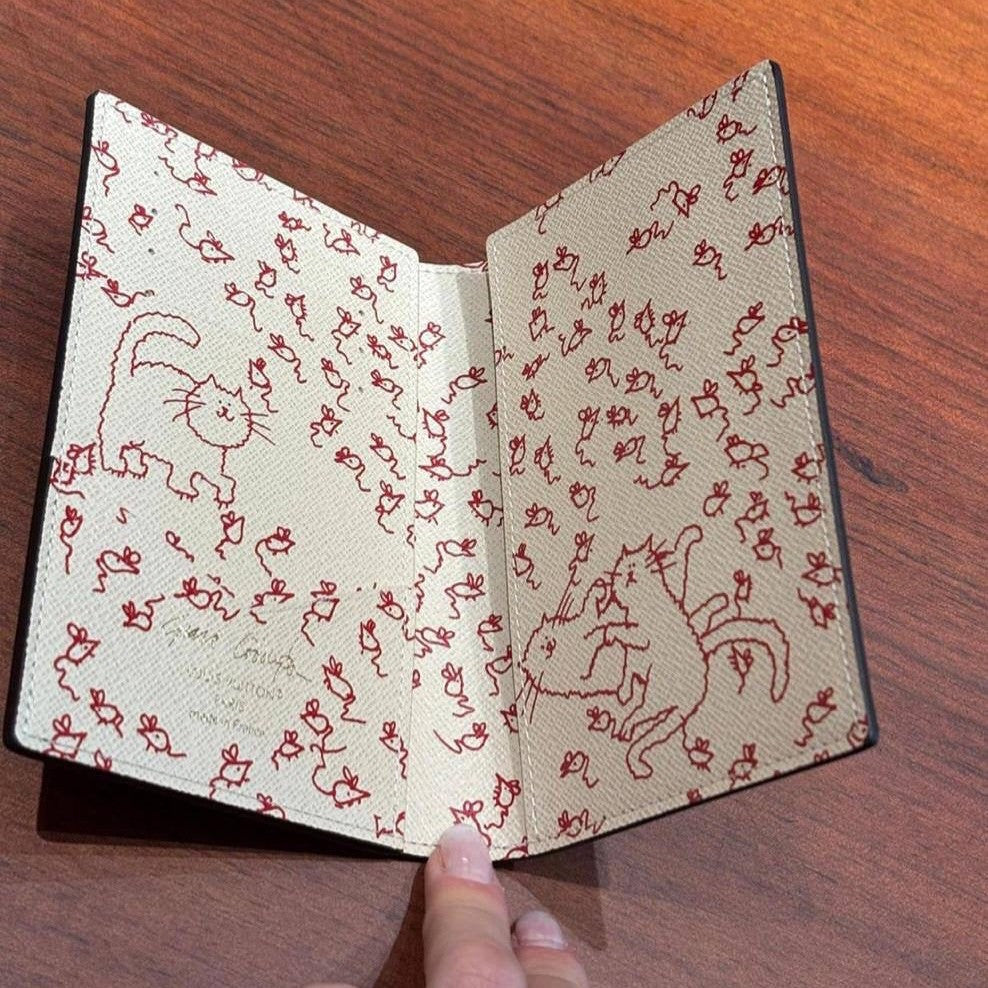 Grace Coddington
LOUIS VUITTON
PARIS
made in France